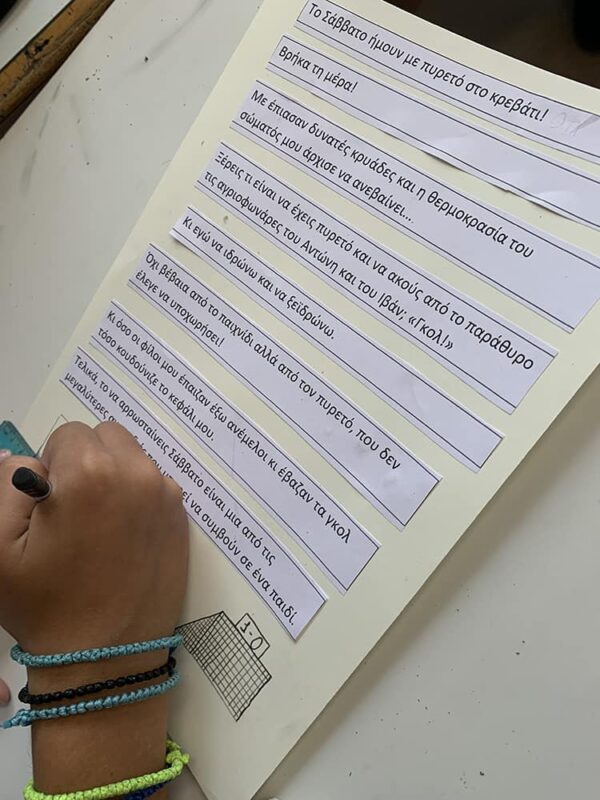 Το Σάββατο ήμουν με πυρετό στο κρεβάτι!
Βρήκα τη μέρα!
Με έπιασαν δυνατές κρυάδες και η θερμοκρασία του
σώματός μου άρχισε να ανεβαίνει...
Ξέρεις τι είναι να έχεις πυρετό και να ακούς από το παράθυρο
τις αγριοφωνάρες του Αντώνη και του Ιβάν; «Γκολ!»
Κι εγώ να ιδρώνω και να ξεϊδρώνω.
Όχι βέβαια από το παιχνίδι αλλά από τον πυρετό, που δεν
έλεγε να υποχωρήσει!
Κι όσο οι φίλοι μου έπαιζαν έξω ανέμελοι κι έβαζαν τα γκολ
τόσο κουδούνιζε το κεφάλι μου.
Τελικά, το να αρρωσταίνεις Σάββατο είναι μια από τις
μεγαλύτερες να συμβούν σε ένα παιδί.